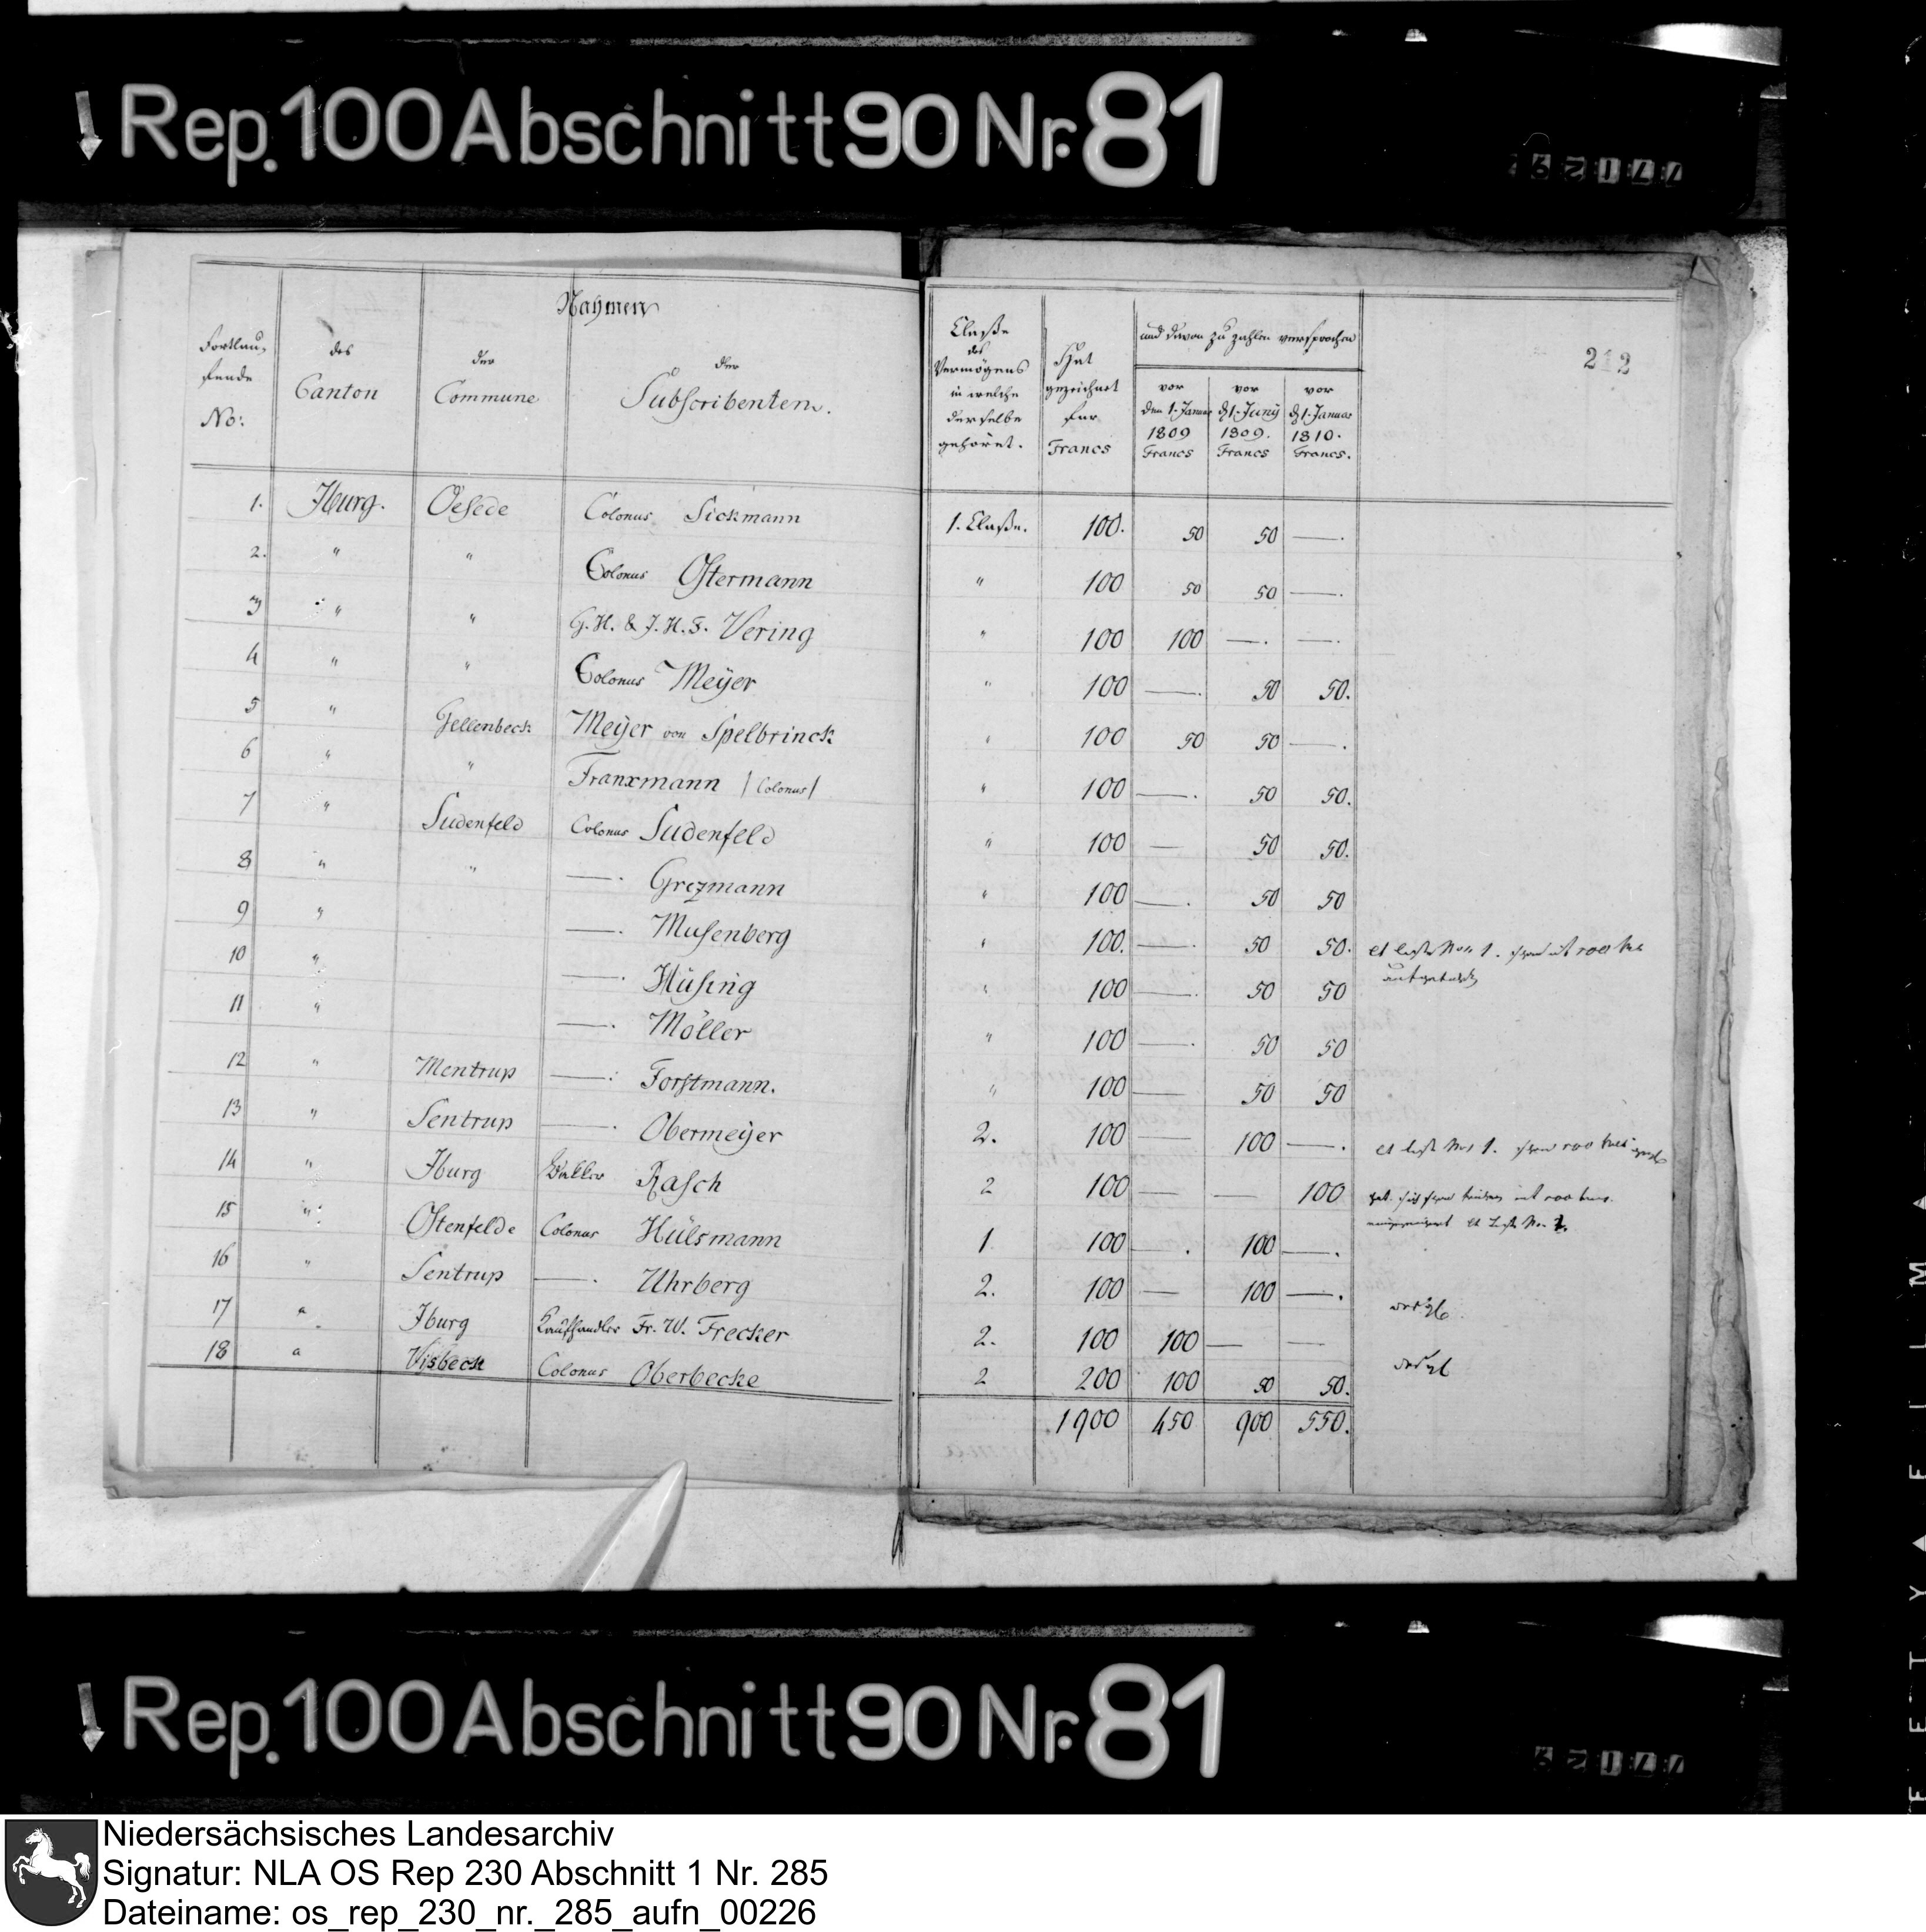 Rep. 100 Abschnitt 90 Nr. 81
Nahmen
Fortlau,
fende
No:
des
Canton
der
Commune
der
Subscribenten.
Claße
des
Vermögens
in welche
derselbe
gehöret.
Hat
gezeichnet
für
Francs
und davon zu zahlen versprochen
vor
den 1. Januar
1809
Francs
vor
d 1. Juny
1809.
Francs
vor
d 1. Januar
1810.
Francs.
212
1. Iburg. Oesede Colonus Sickmann 1. Claße. 100. 50 50 —.
2. " " Colonus Ostermann " 100 50 50 —.
3 " " G. H. & J. H. S. Vering " 100 100 —. —.
4 " " Colonus Meÿer " 100 —. 50 50.
5 " Gellenbeck Meÿer von Spelbrinck " 100 50 50 —.
6 " " Franxmann /Colonus/ " 100 —. 50 50.
7 " Sudenfeld Colonus Sudenfeld " 100 — 50 50.
8 " " —. Grezmann " 100 —. 50 50
9 " —. Musenberg " 100. —. 50 50.
10 " —. Hüsing " 100 —. 50 50
11 " —. Möller " 100 —. 50 50
12 " Mentrup —. Forstmann. " 100 — 50 50
13 " Sentrup —. Obermeÿer 2. 100 — 100 —.
14 " Iburg Rasch 2 100 — — 100
15 " Ostenfelde Colonus Hülsmann 1 100 —. 100 —.
16 " Sentrup —. Uhrberg 2. 100 — 100 —.
17 " Iburg Kaufhandler Fr. W. Frecker 2. 100 100 — —
18 " Visbeck Colonus Oberbecke 2 200 100 50 50.
1900 450 900 550.
Rep. 100 Abschnitt 90 Nr. 81
Niedersächsisches Landesarchiv
Signatur: NLA OS Rep 230 Abschnitt 1 Nr. 285
Dateiname: os_rep_230_nr._285_aufn_00226